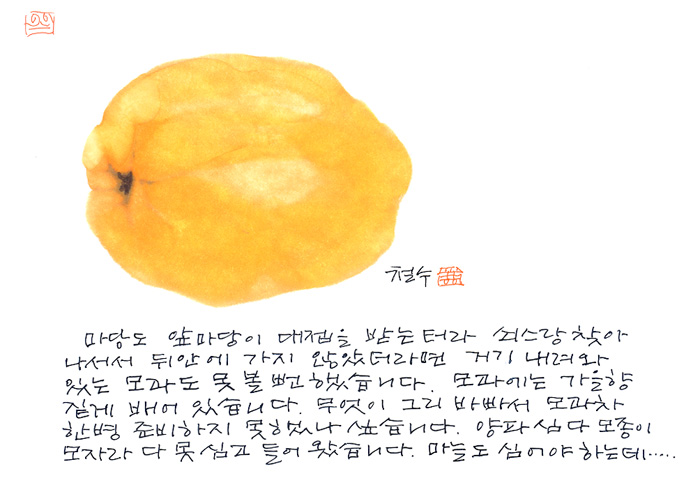 철수
마당도 앞마당이 대접을 받는터라 쇠스랑 찾아
나서서 뒤안에 가지 않았더라면 거기 내려와
있는 모과도 못 볼 뻔 했습니다. 모과에는 가을향
짙게 배어 있습니다. 무엇이 그리 바빠서 모과차
한병 준비하지 못했나 싶습니다. 양파 심다 모종이
모자라 다 못 심고 들어 왔습니다. 마늘도 심어야 하는데.....